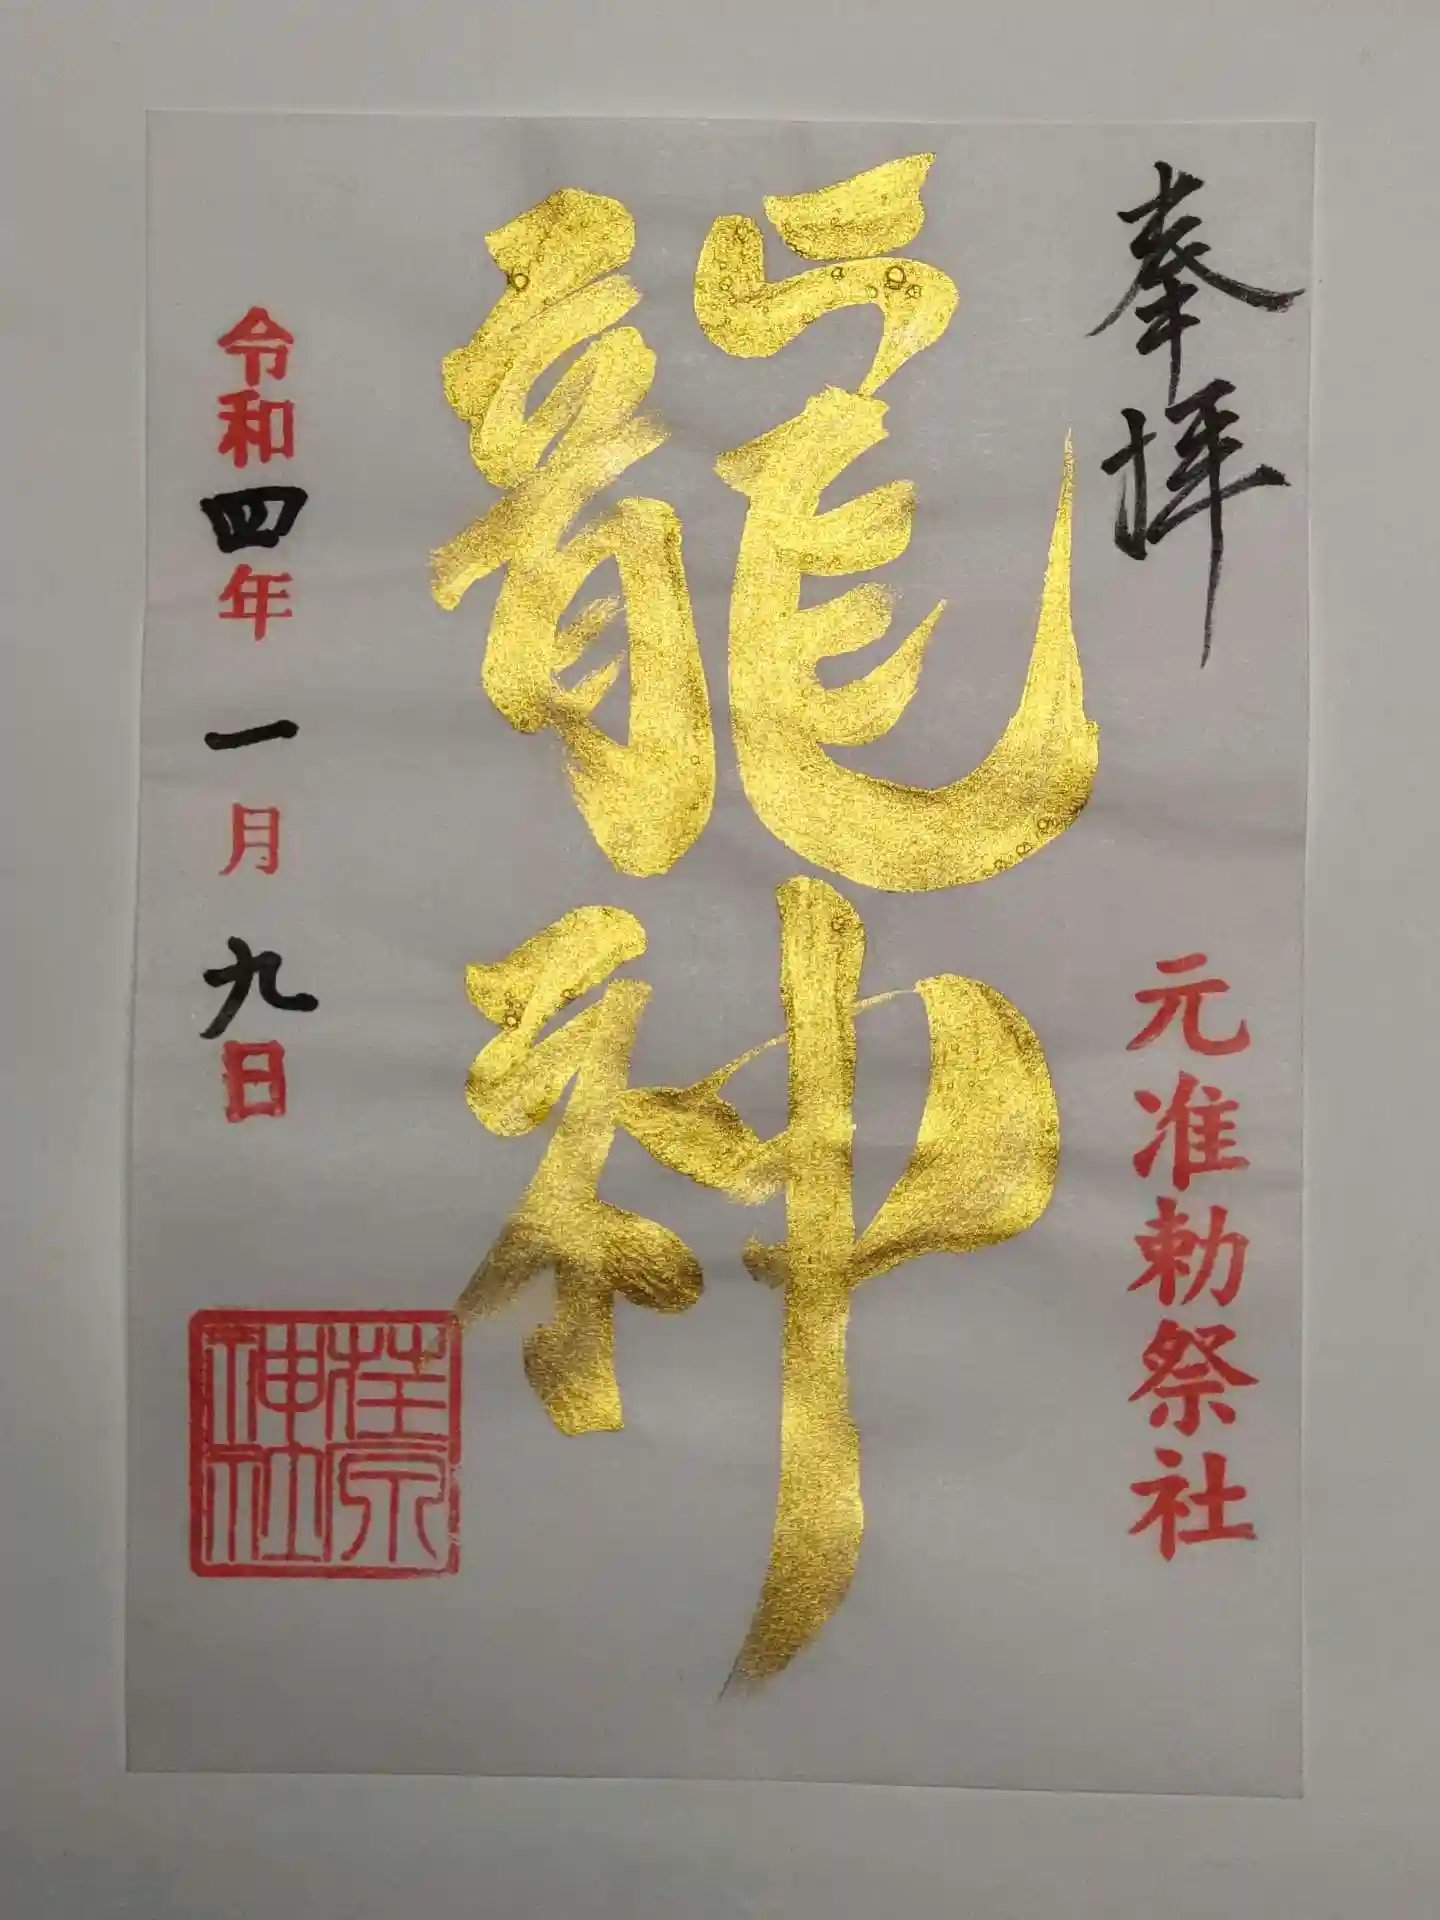 奉拝
元准勅祭社
龍神
令和四年一月九日
荏原
神社